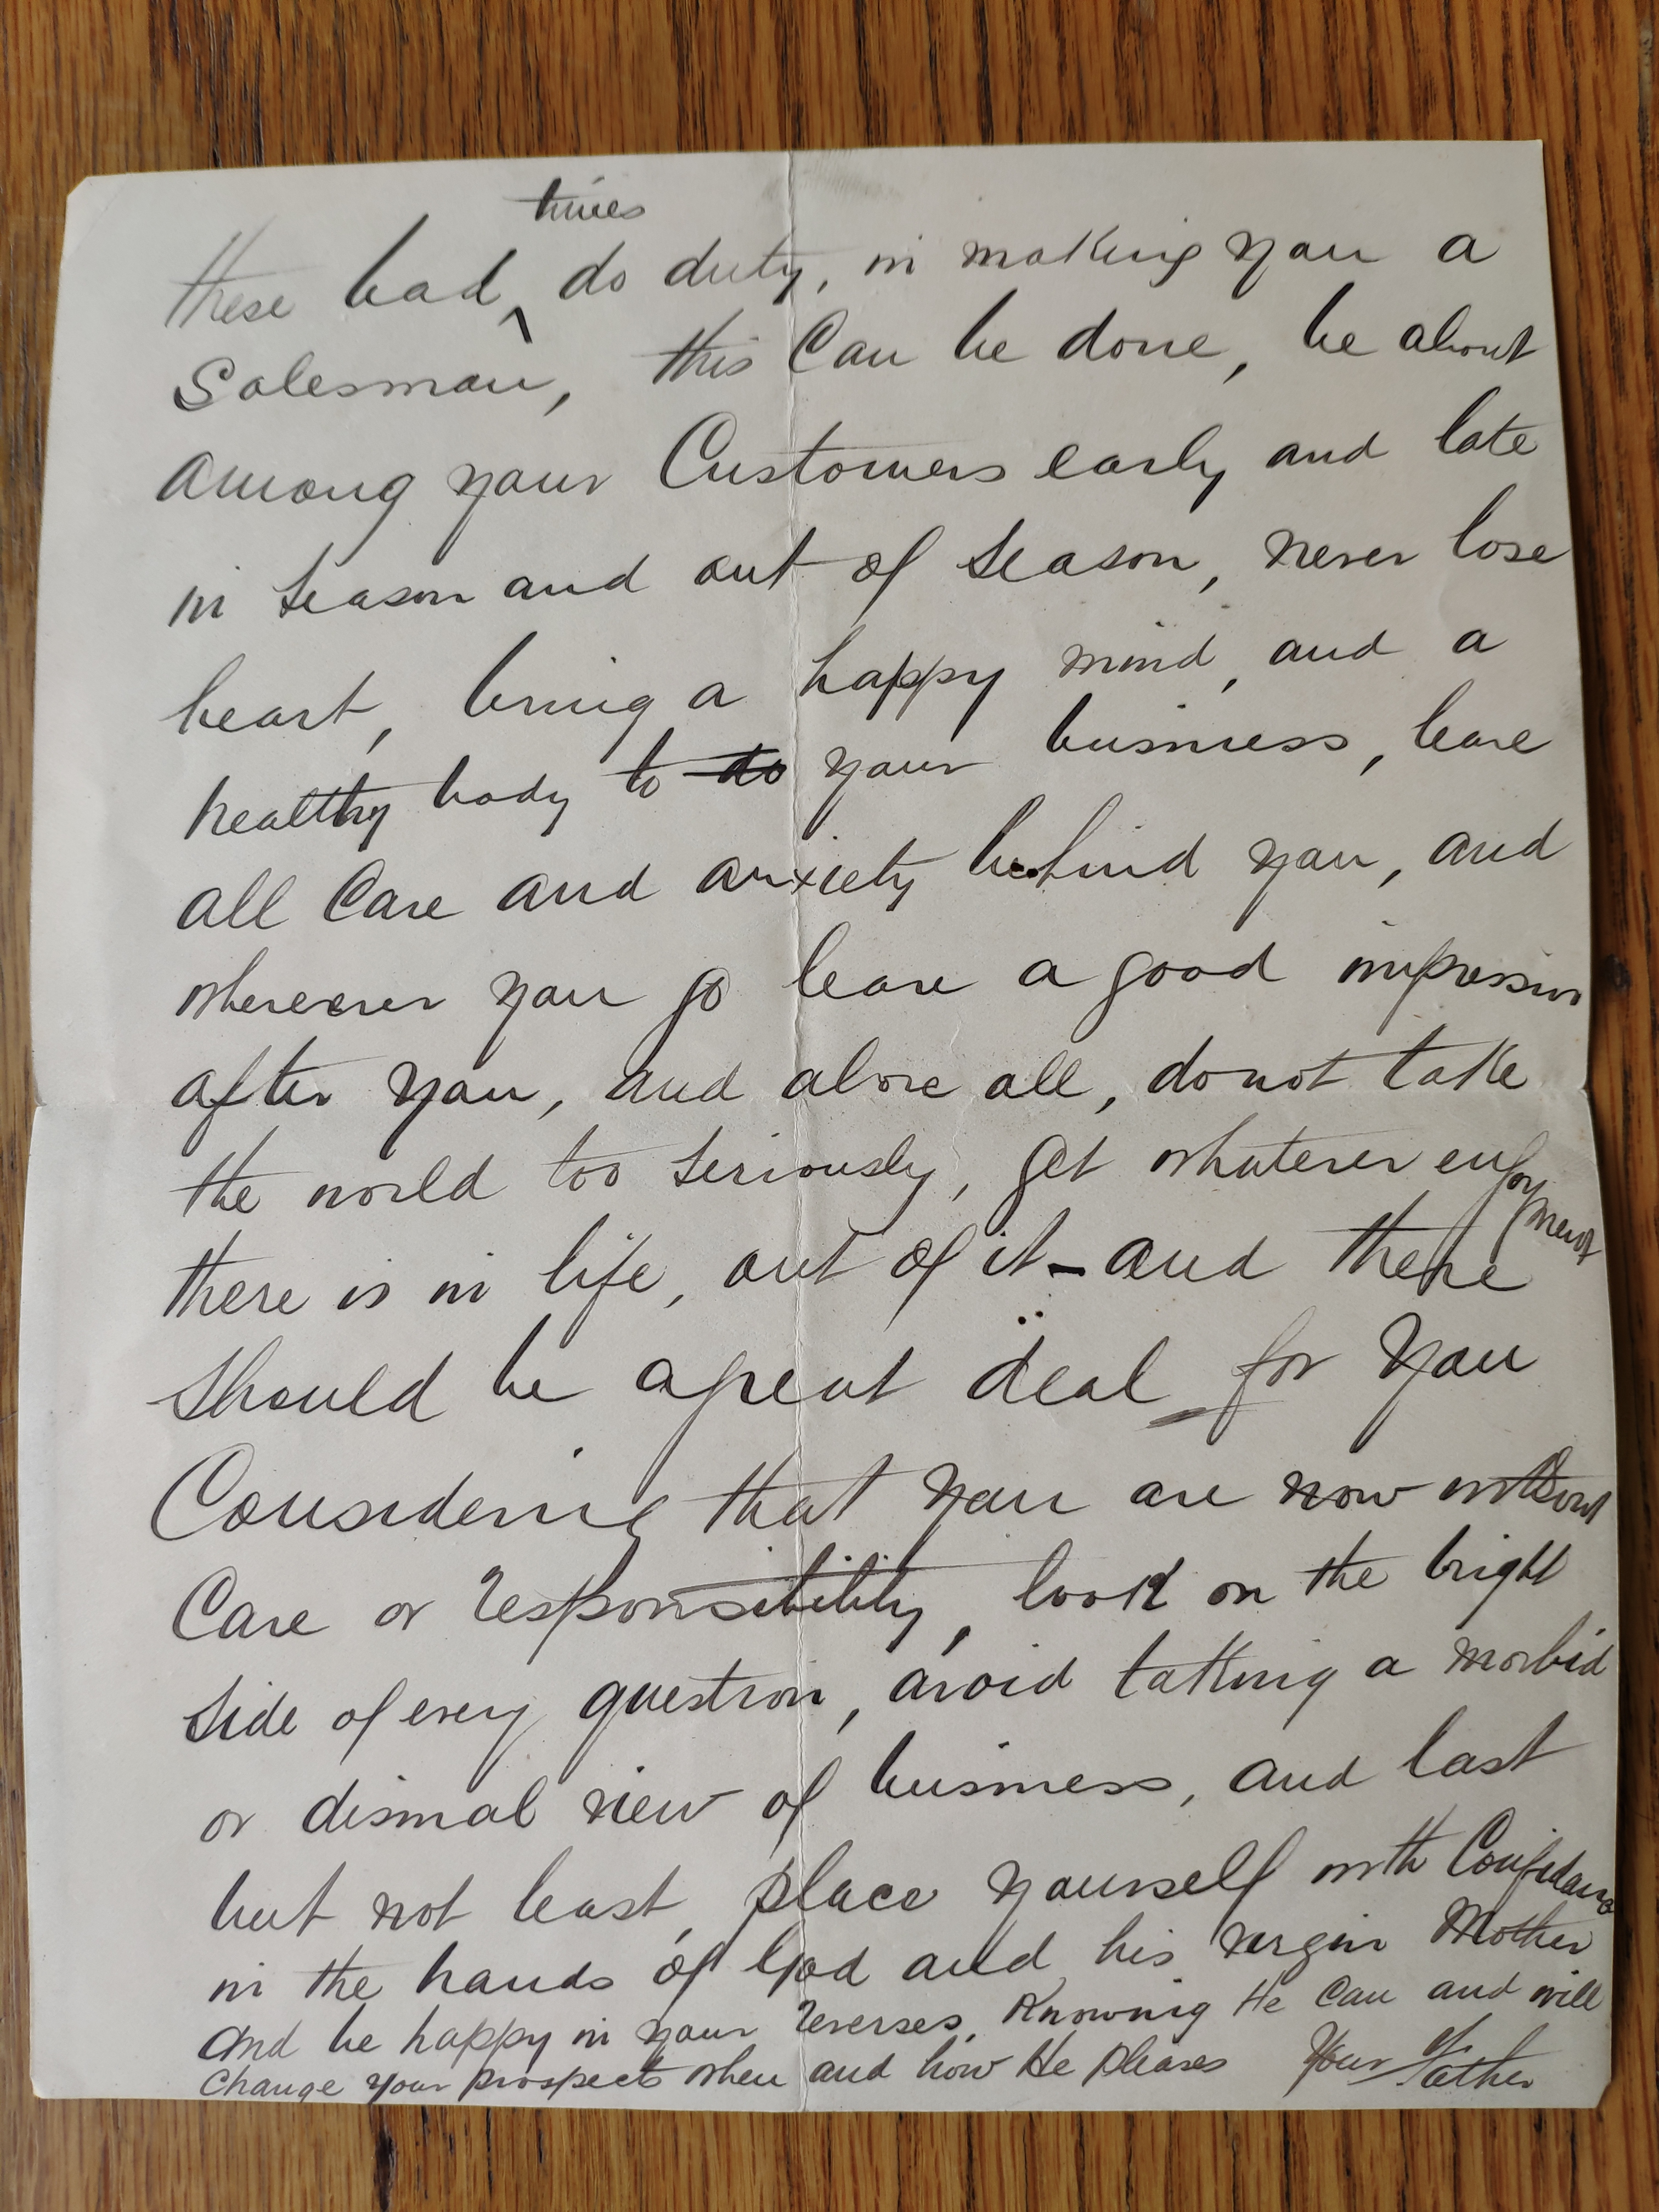 times
these bad ^ do duty, in making you a
Salesman, this Can be done, be about
among your Customers early and late
in season and out of season, never lose
heart, bring a happy mind, and a
healthy body to do your business, leave
all Care and anxiety behind you, and
wherever you go leave a good impression
after you, and above all, do not take
the world too seriously, get whatever enjoyment
there is in life, out of it - and there
should be a great deal for you
Considering that you are now without
Care or responsibility, look on the bright
side of every question, avoid taking a morbid
or dismal view of business, and last
but not least, place yourself with Confidance
in the hands of God and his virgin Mother
and be happy in your reverses, Knowing He Can and will
Change your prospects when and how He pleases Your Father